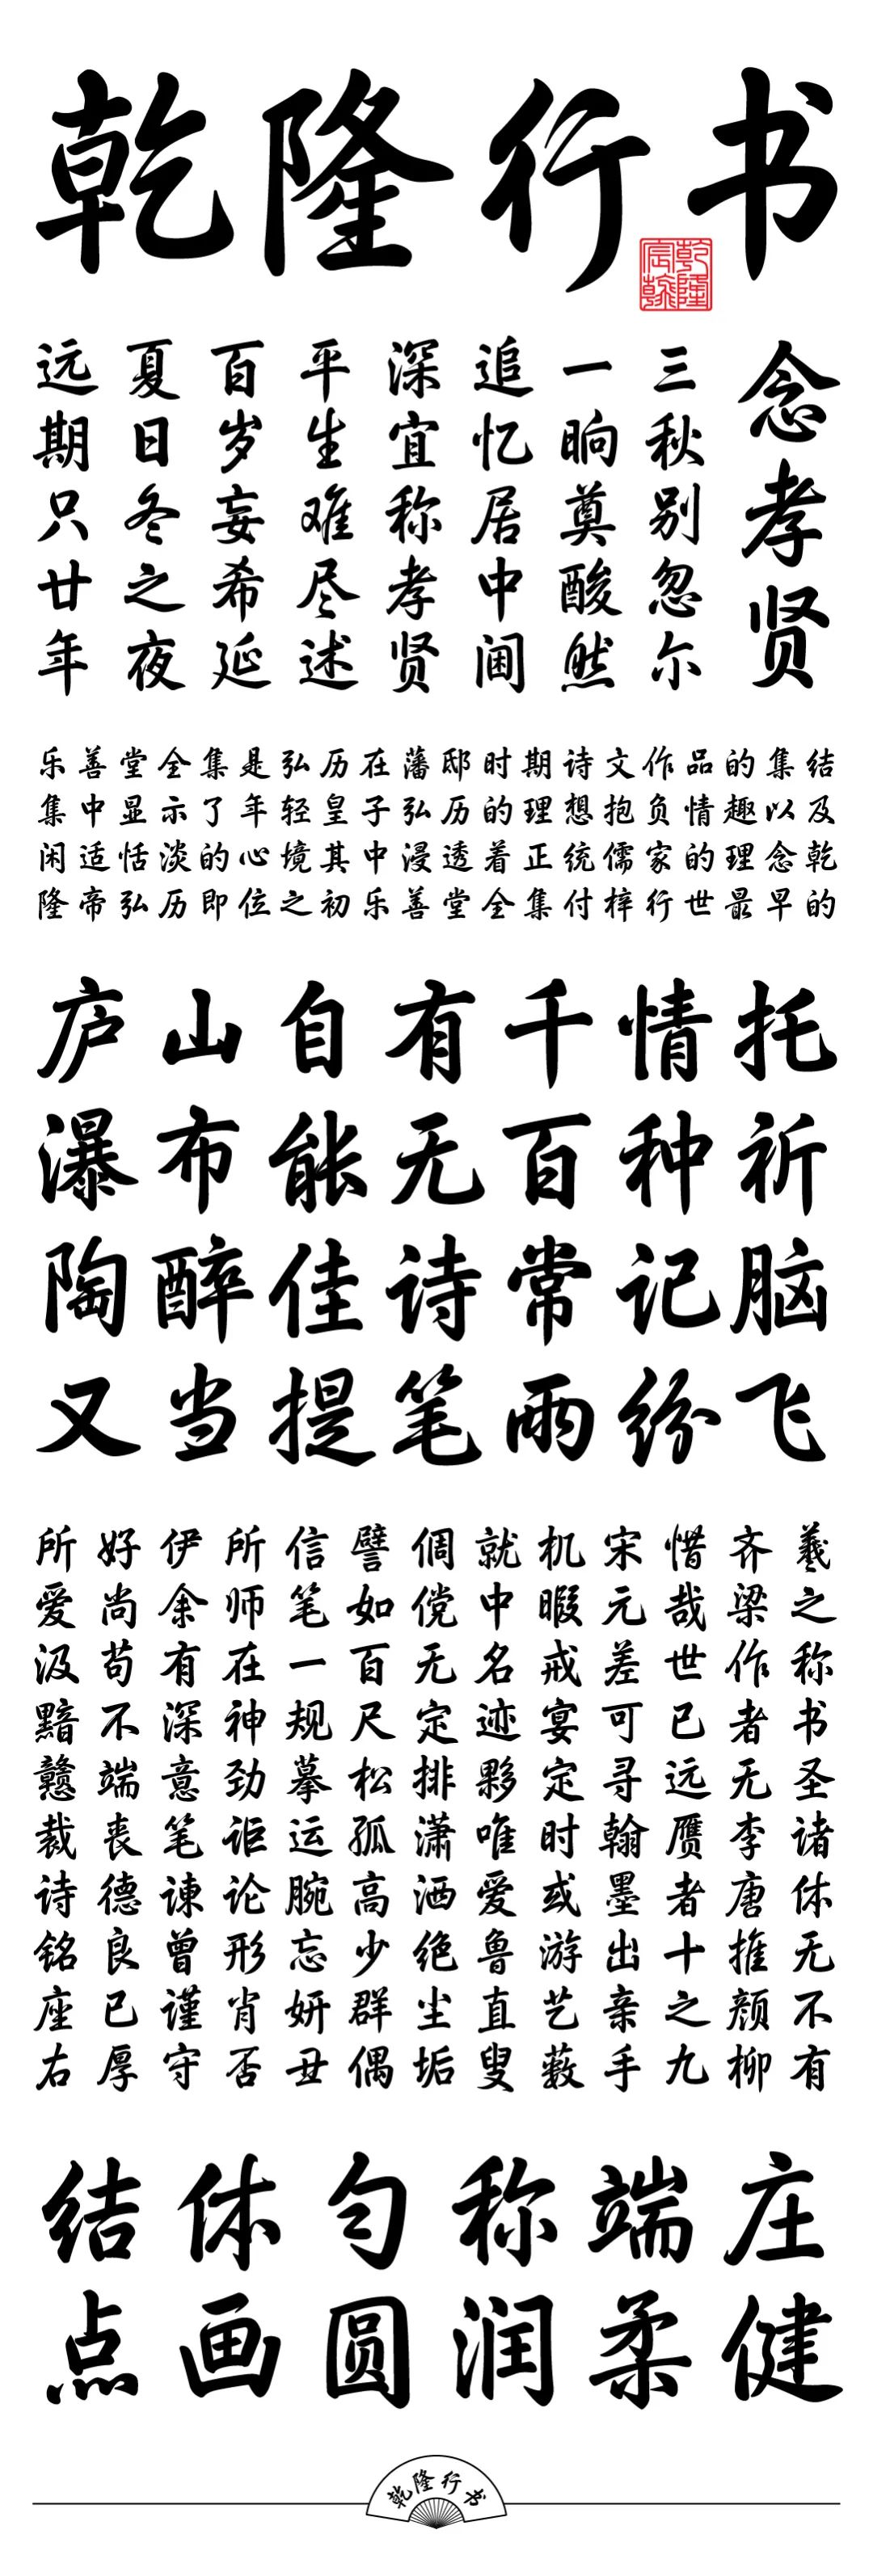 乾隆行书
乾隆宸翰
念孝贤
三秋别忽尔
一晌奠酸然
追忆居中阃
深宜称孝贤
平生难尽述
百岁妄希延
夏日冬之夜
远期只廿年
乐善堂全集是弘历在藩邸时期诗文作品的集结
集中显示了年轻皇子弘历的理想抱负情趣以及
闲适恬淡的心境其中浸透着正统儒家的理念乾
隆帝弘历即位之初乐善堂全集付梓行世最早的
庐山自有千情托
瀑布能无百种祈
陶醉佳诗常记脑
又当提笔雨纷飞
羲之称书圣诸体无不有
齐梁作者无李唐推颜柳
惜哉世已远赝者十之九
宋元差可寻翰墨出亲手
机暇戒宴定时或游艺薮
就中名迹夥唯爱鲁直叟
倜傥无定排潇洒绝尘垢
譬如百尺松孤高少群偶
信笔一规摹运腕忘妍丑
所师在神劲讵论形肖否
伊余有深意笔谏曾谨守
好尚苟不端丧德良已厚
所爱汲黯戆裁诗铭座右
结体匀称端庄
点画圆润柔健
乾隆行书